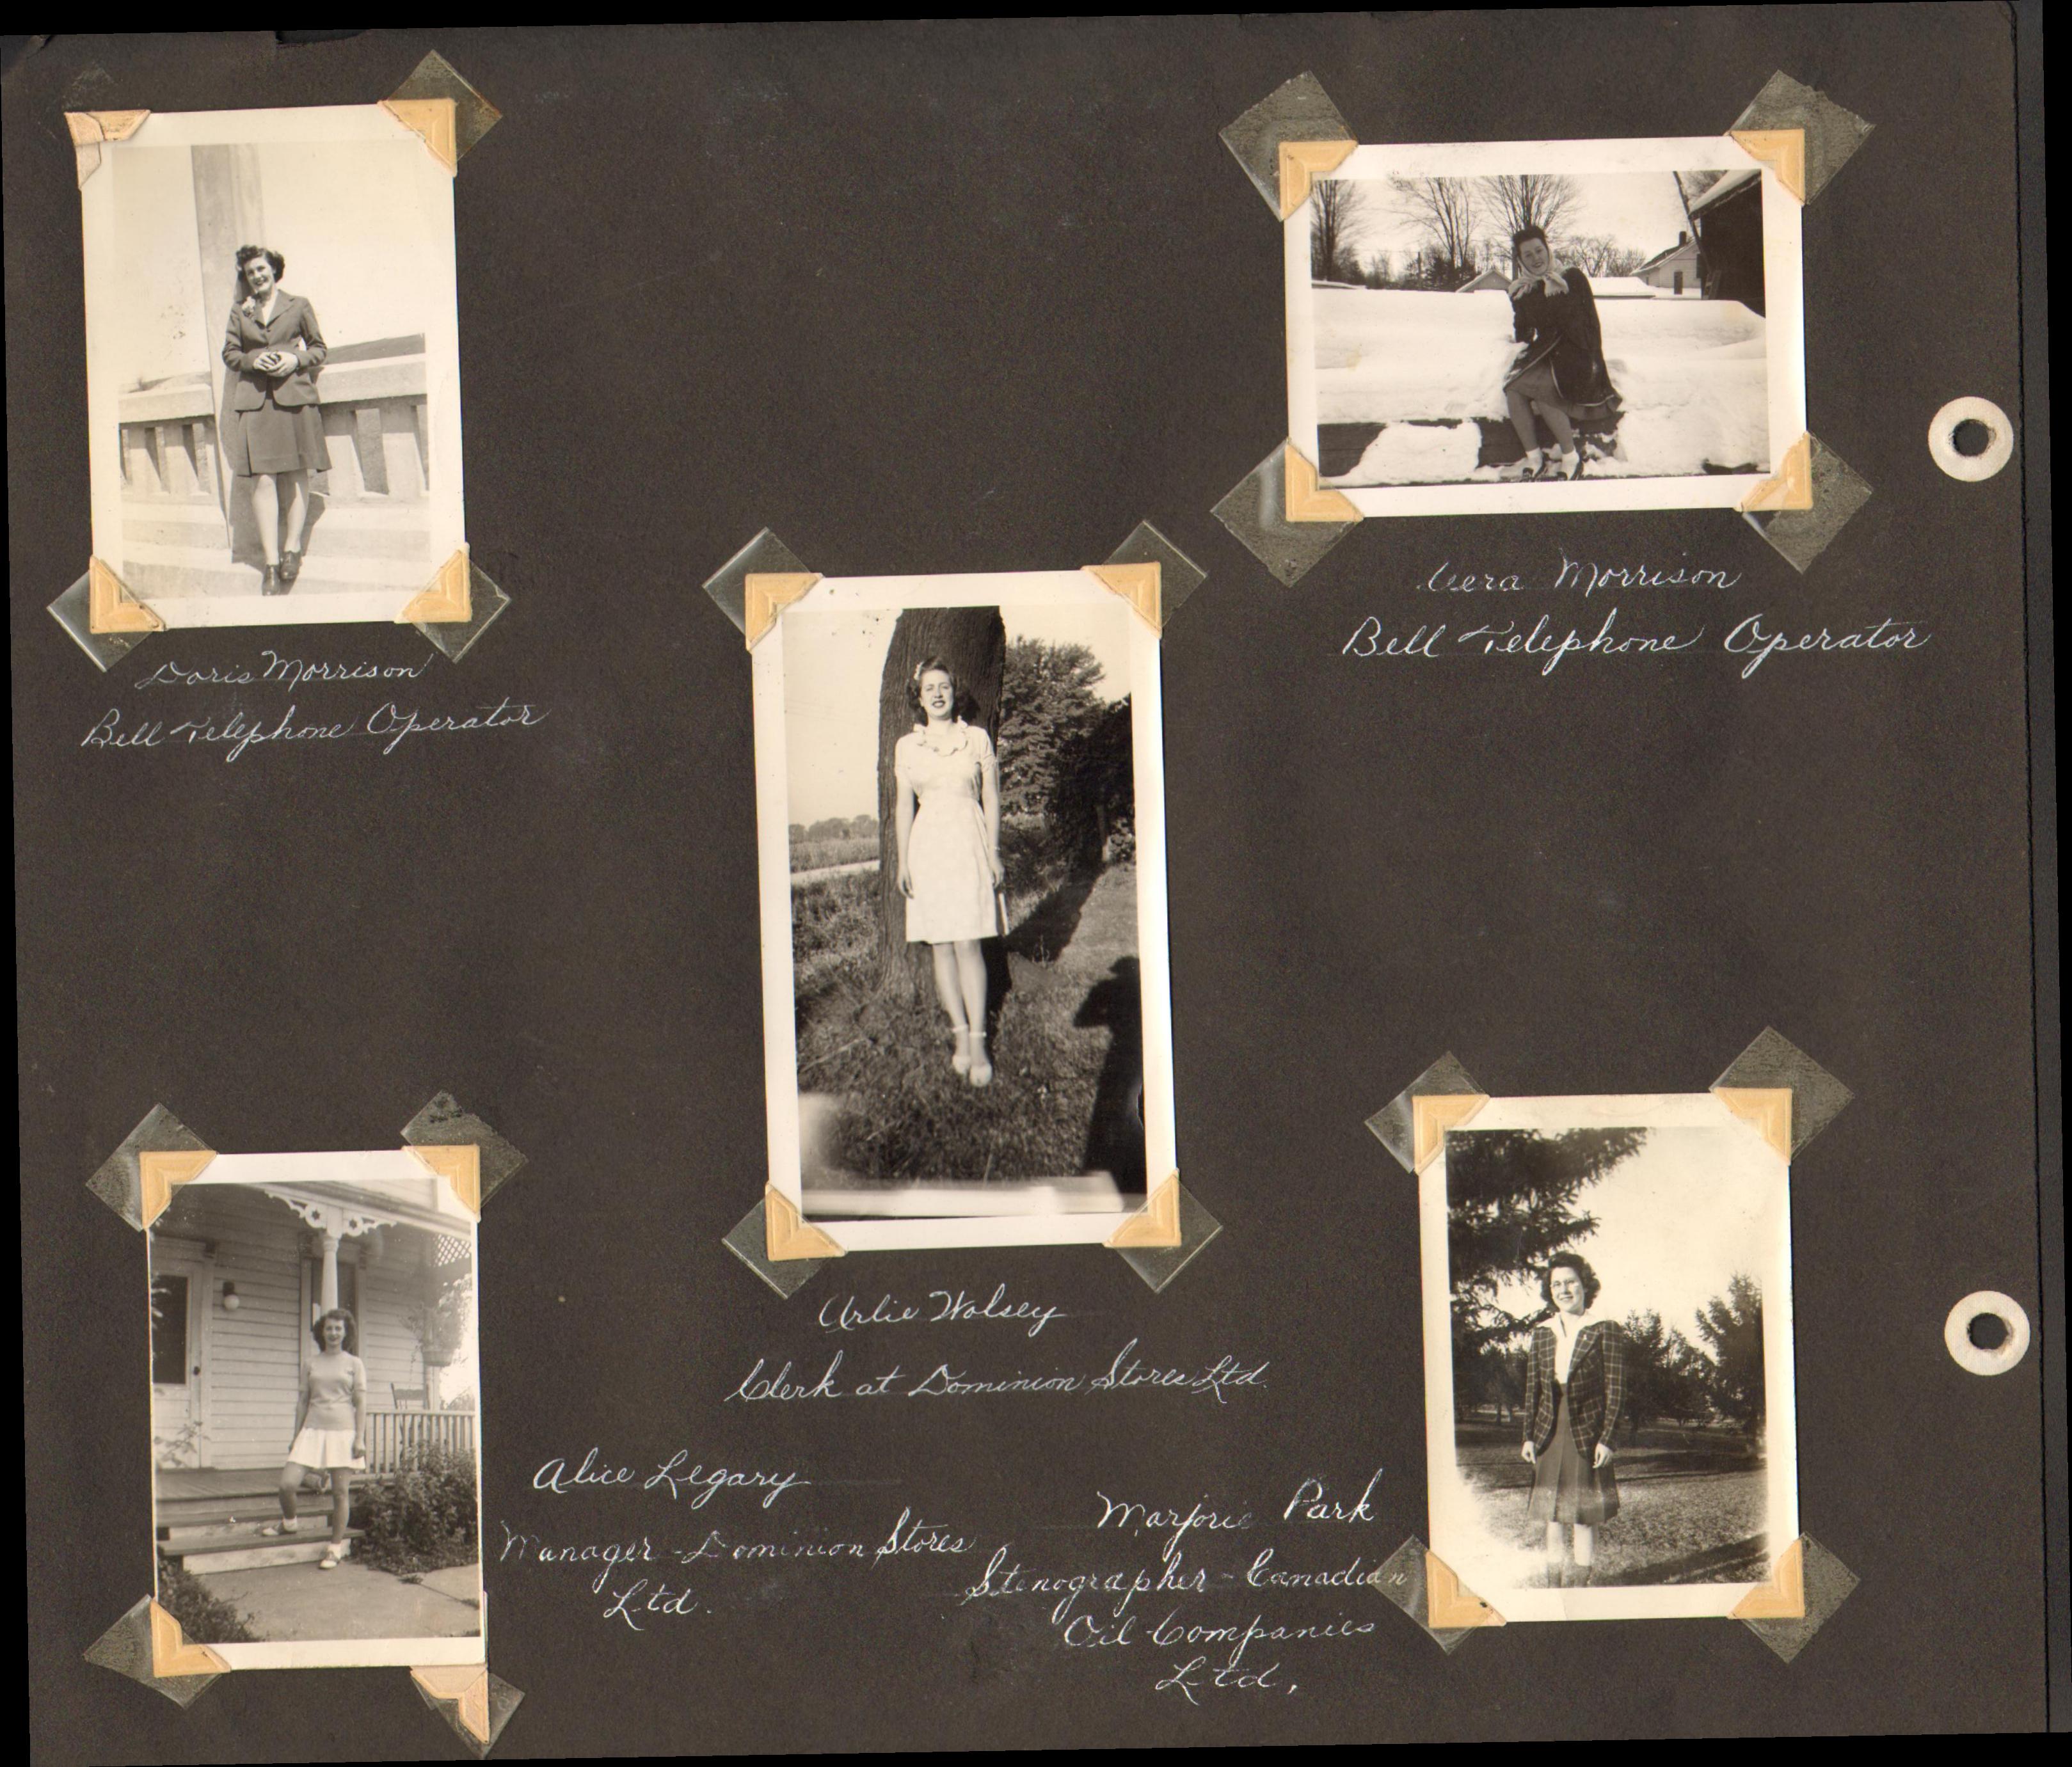 Doris Morrison
Bell Telephone Operator
Vera Morrison
Bell Telephone Operator
Arlie Wolsey
Clerk at Dominion Stores Ltd.
Alice Legary
Manager - Dominion Stores
Ltd.
Marjorie Park
Stenographer - Canadian
Oil Companies
Ltd.